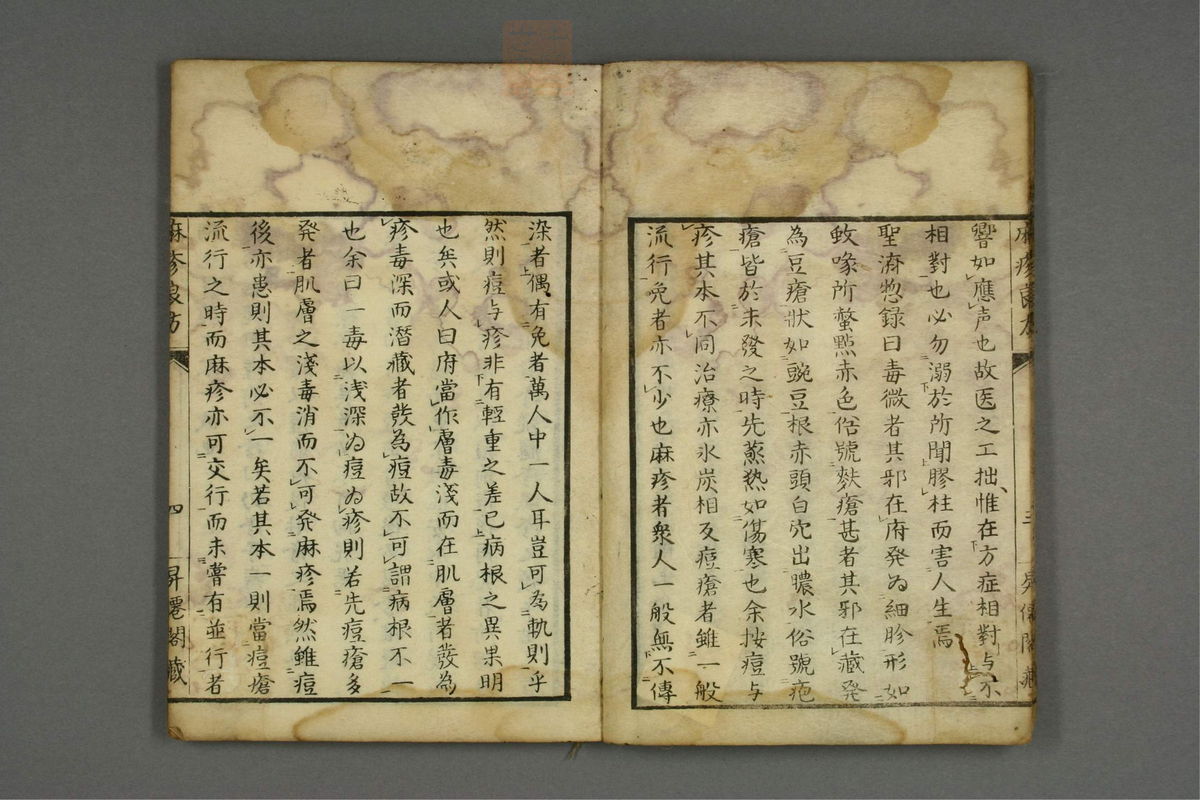 響如應声也故医之工拙惟在方症相對与不
相對也必勿溺於所聞膠柱而害人生焉
聖濟惣録曰毒微者其邪在府発為細胗形如
蚊喙所螫點赤色俗號麩瘡甚者其邪在藏発
為豆瘡狀如豌豆根赤頭白穴出膿水俗號疱
瘡皆於未發之時先蒸熱如傷寒也余按痘与
疹其本不同治療亦氷炭相反痘瘡者雖一般
流行免者亦不少也麻疹者衆人一般無不傳
染者偶有免者萬人中一人耳豈可為軌則乎
然則痘与疹非有輕重之差已病根之異果明
也矣或人曰府當作層毒淺而在肌層者發為
疹毒深而潜藏者發為痘故不可謂病根不一
也余曰一毒以浅深為痘為疹則若先痘瘡多
発者肌層之淺毒消而不可発麻疹焉然雖痘
後亦患則其本必不一矣若其本一則當痘瘡
流行之時而麻疹亦可交行而未嘗有並行者
麻疹良方
四
昇遷閣藏